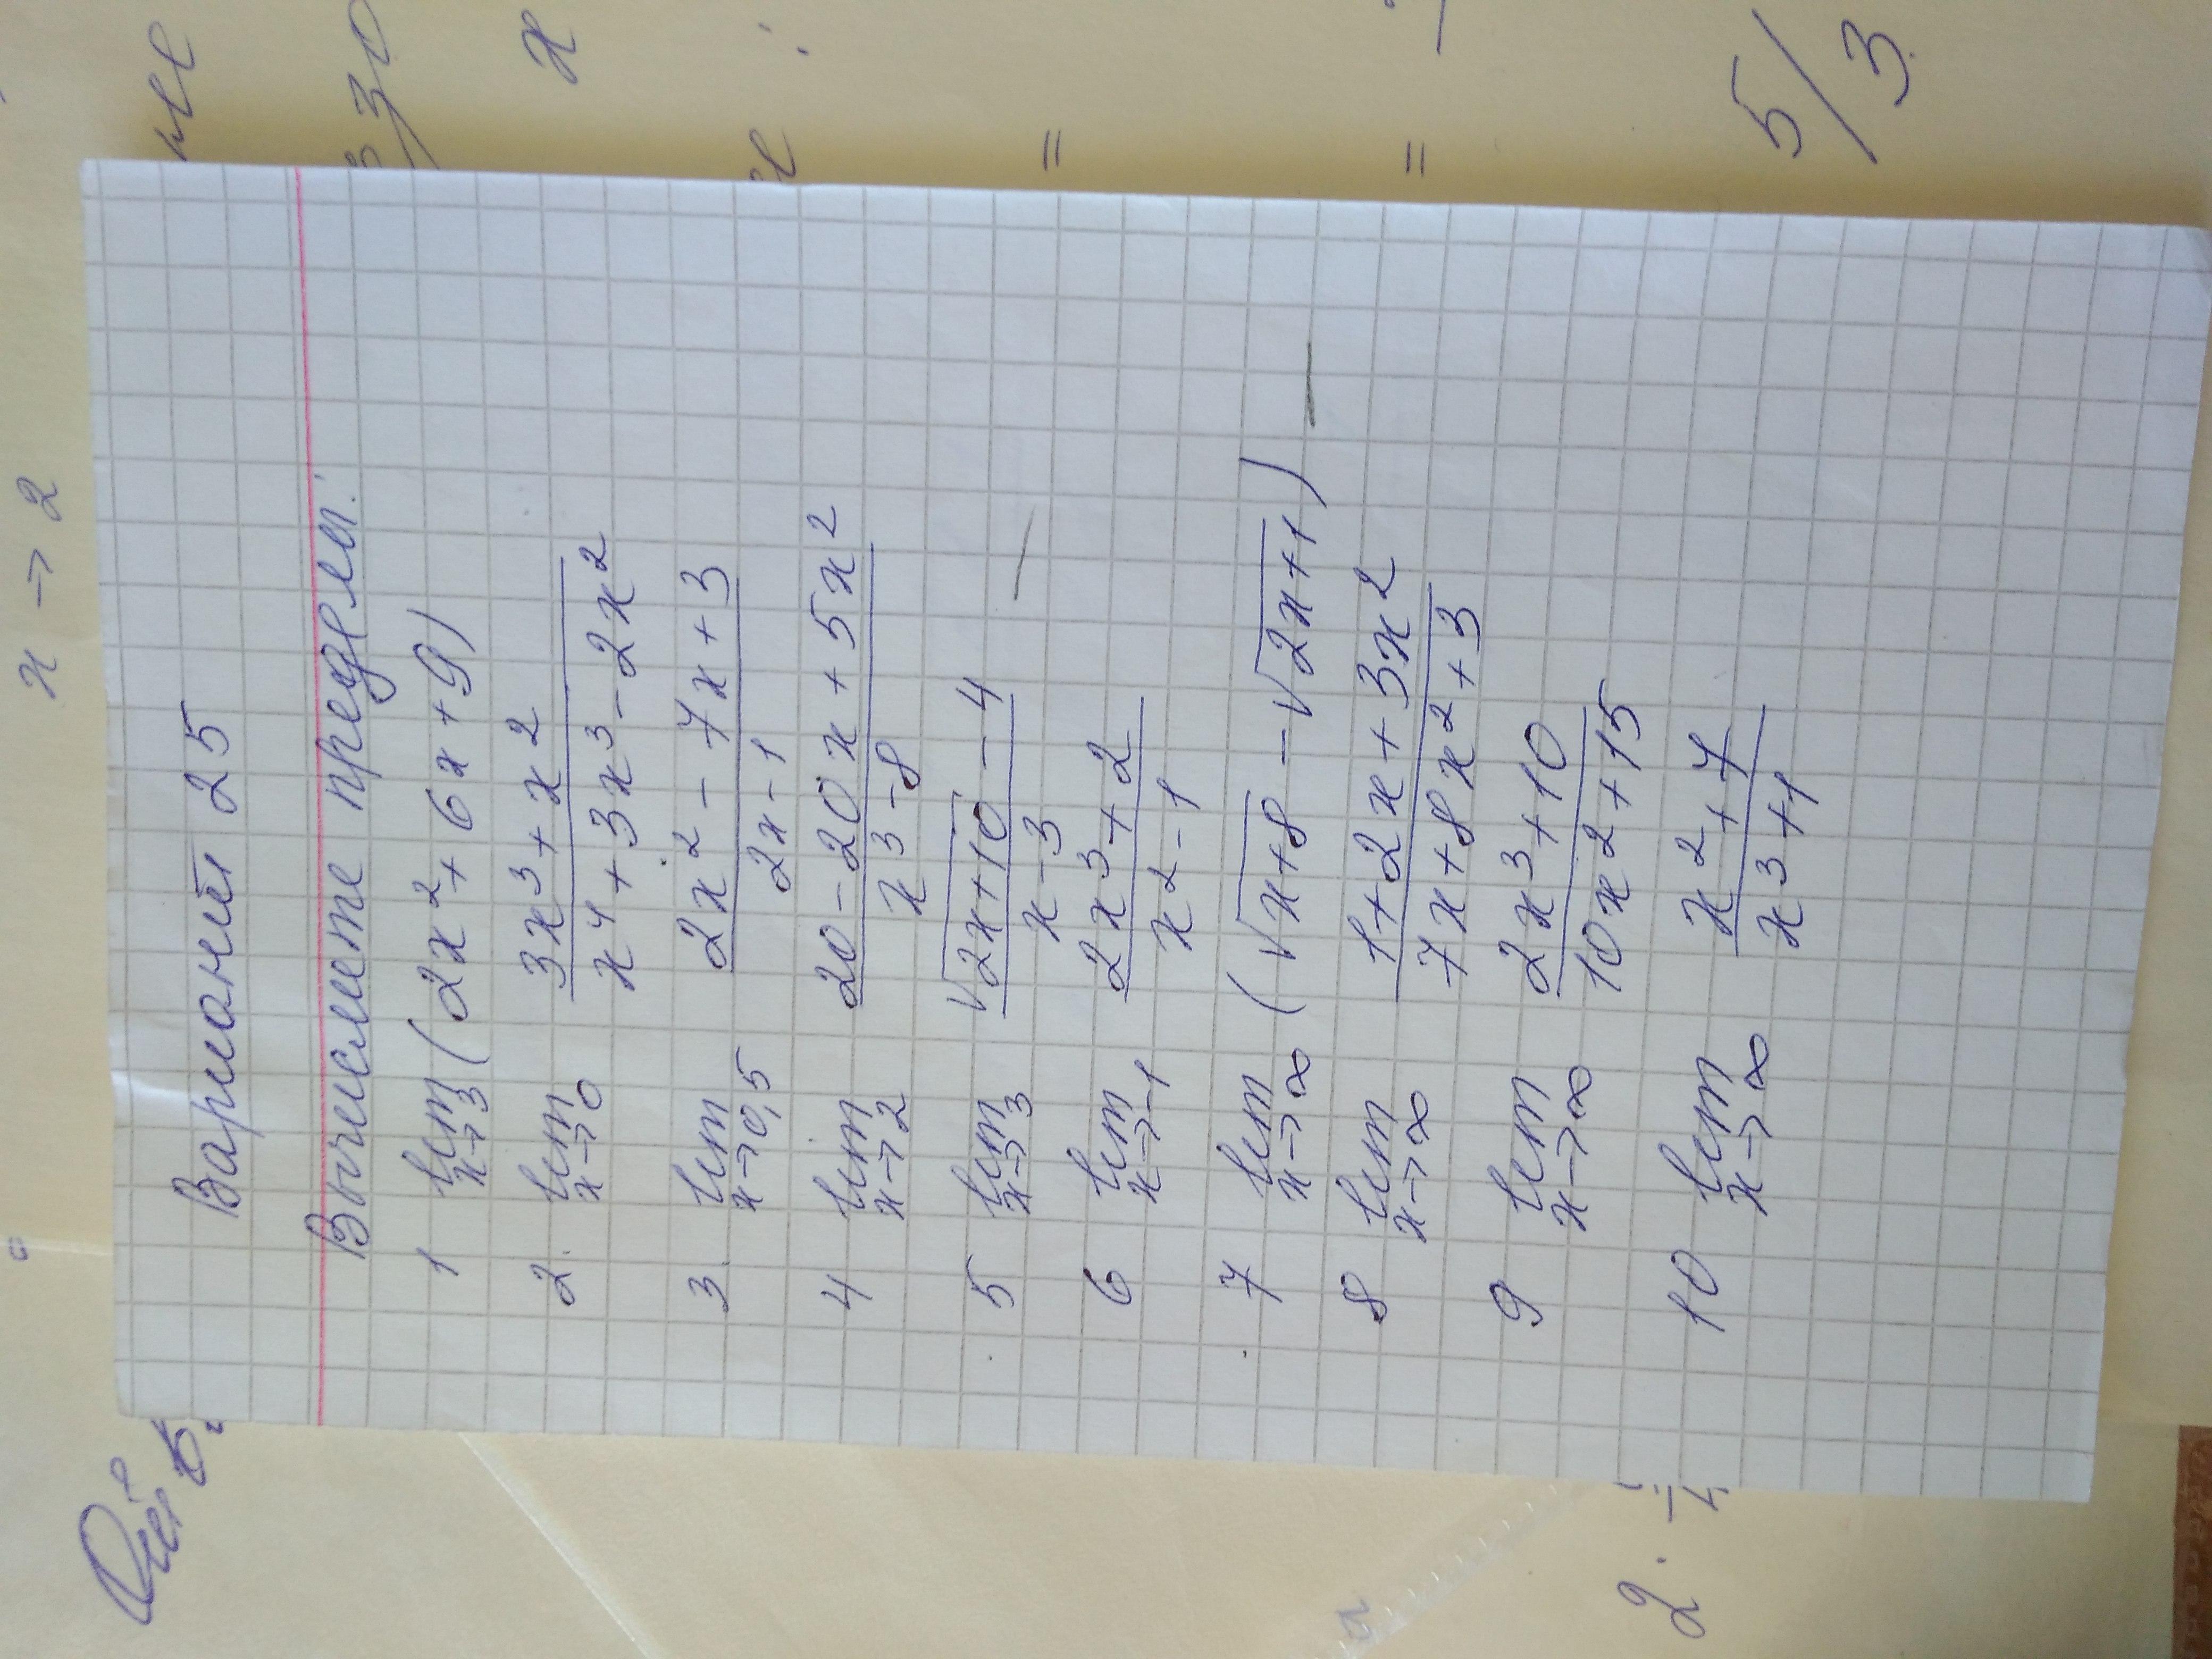 Вариант 25
Вычислите пределы:
1 lim x→3 (2x² + 6x + 9)
2. lim x→0 (3x³ + x²) / (x⁴ + 3x³ - 2x²)
3. lim x→0,5 (2x² - 7x + 3) / (2x - 1)
4 lim x→2 (20 - 20x + 5x²) / (x³ - 8)
5 lim x→3 (√(2x+10) - 4) / (x - 3)
6 lim x→-1 (2x³ + 2) / (x² - 1)
7 lim x→∞ (√(x+8) - √(2x+1))
8 lim x→∞ (1 + 2x + 3x²) / (7x + 8x² + 3)
9 lim x→∞ (2x³ + 10) / (10x² + 15)
10 lim x→∞ (x² + 7) / (x³ + 1)
x → 2
=
=
5/3
2 ·